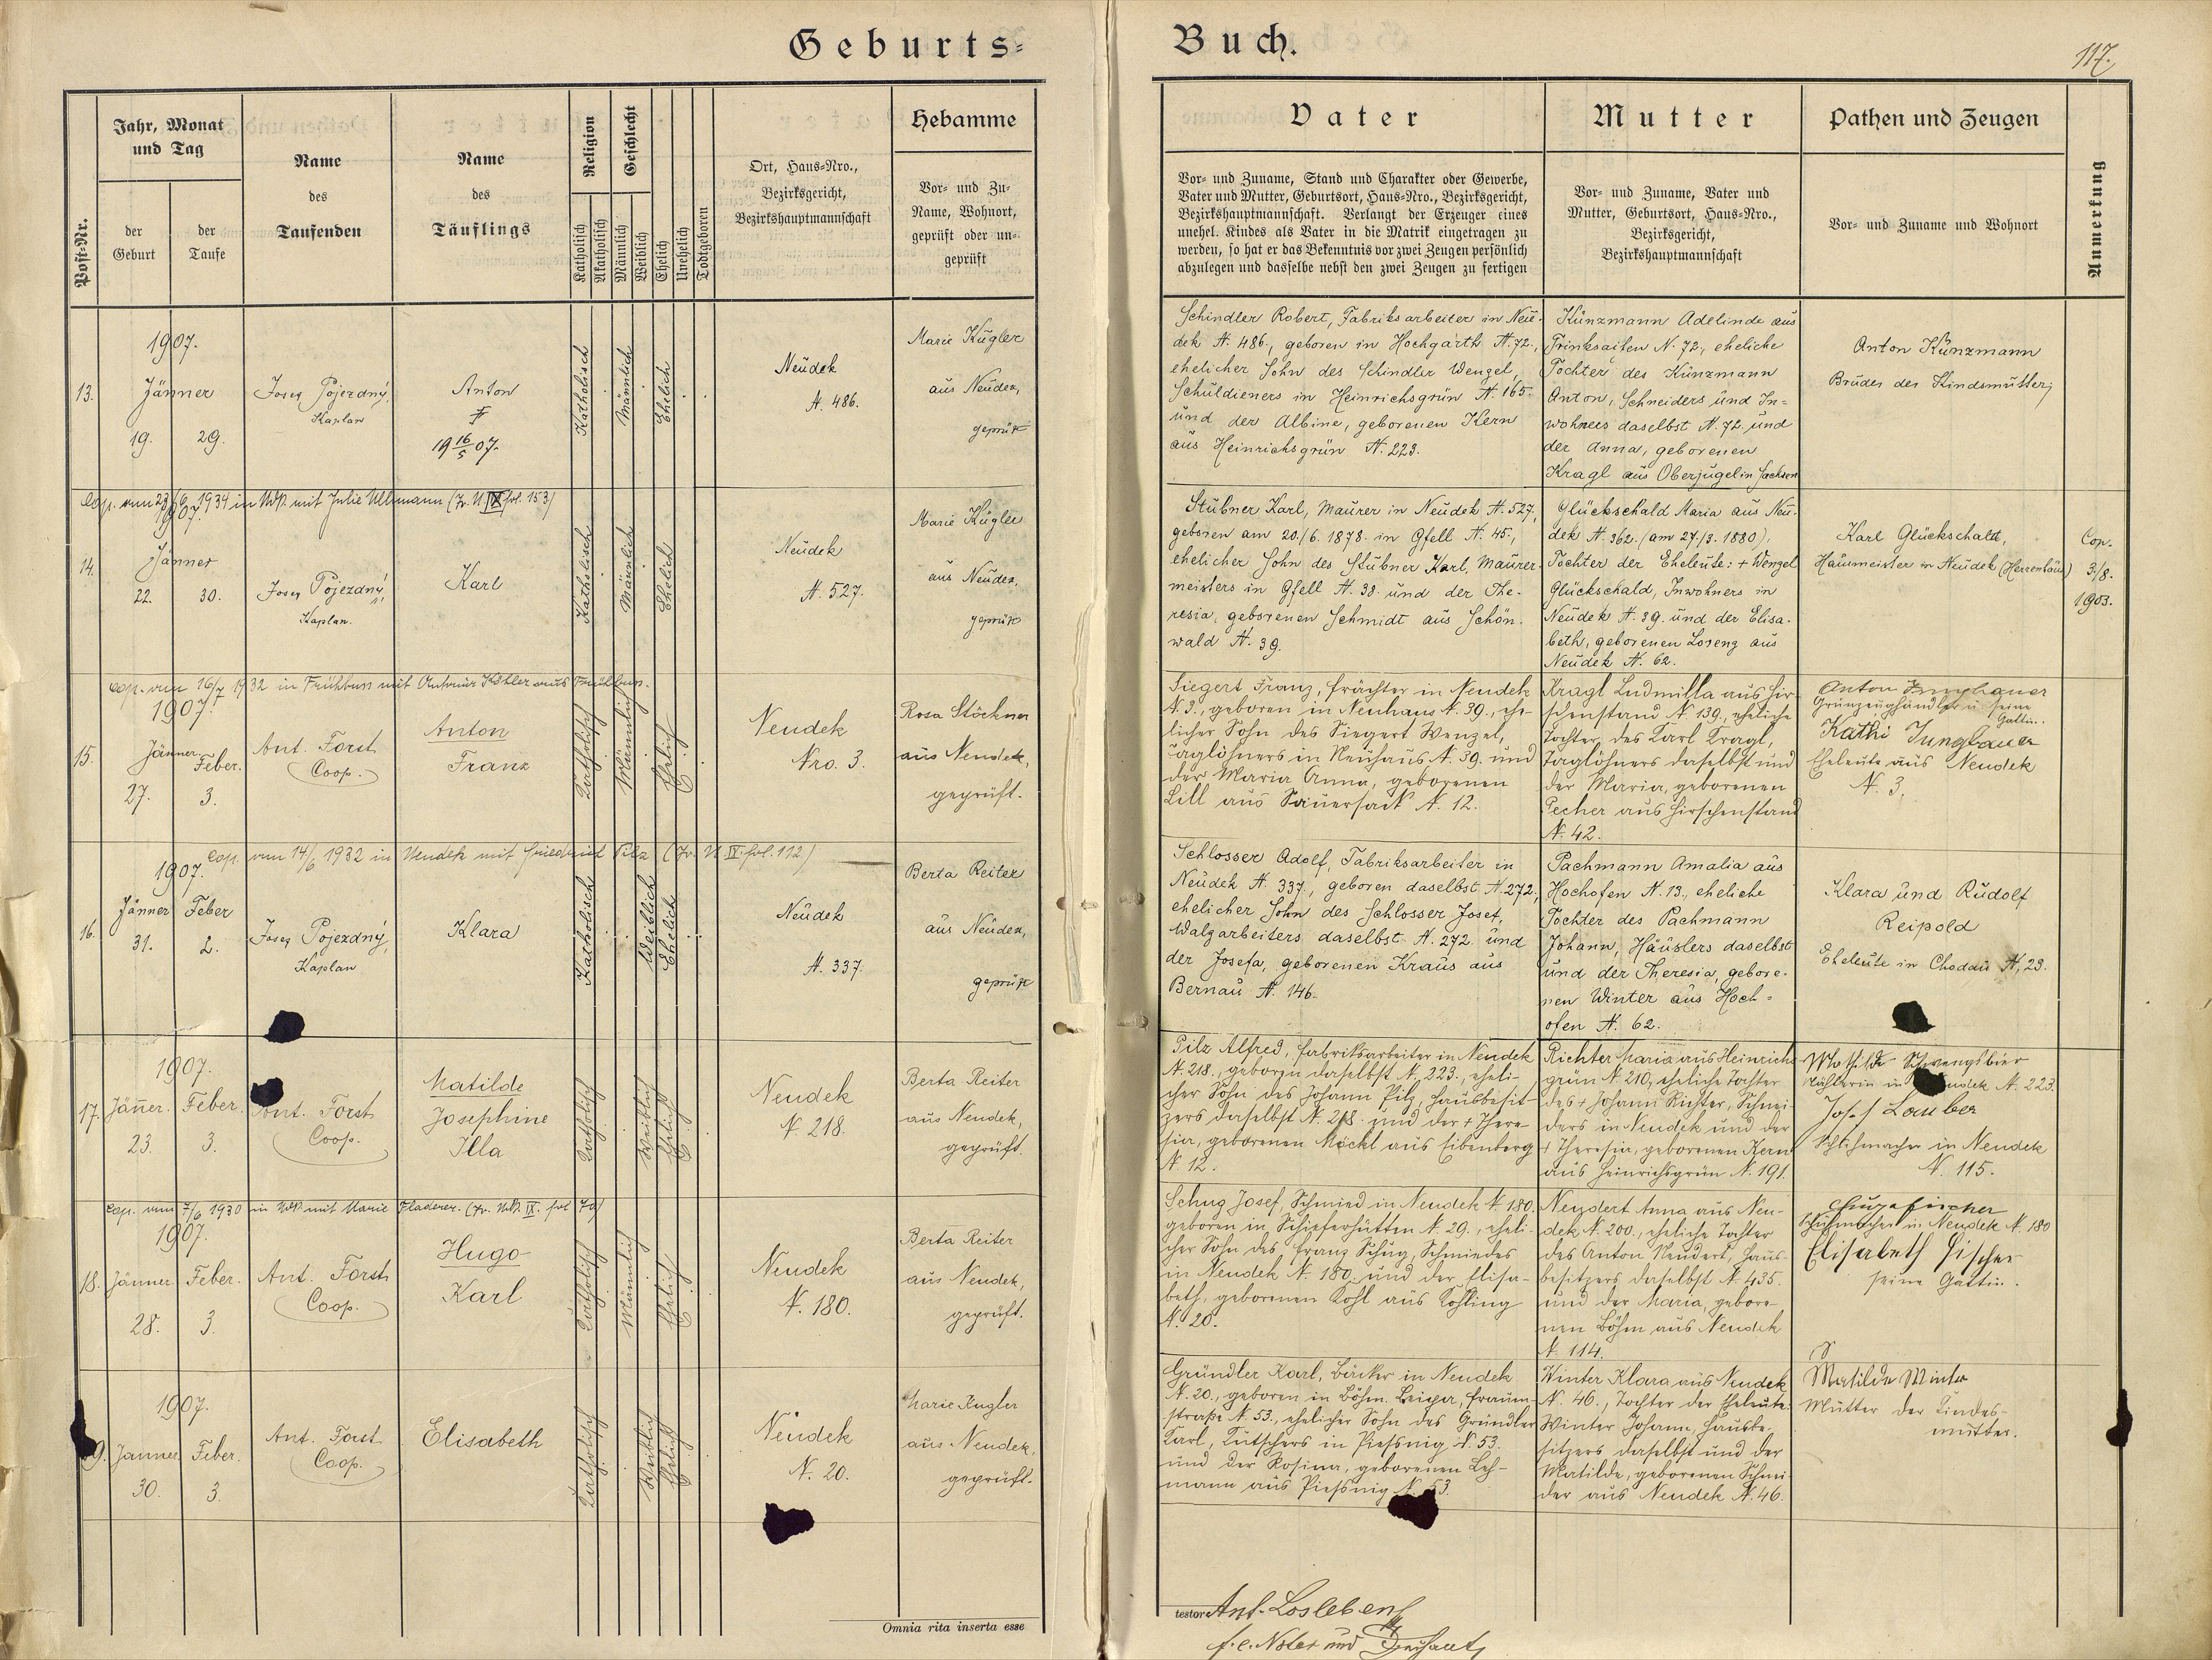 Geburts-
Buch.
117.
Post-Nr.
Jahr, Monat
und Tag
der
Geburt
der
Taufe
Name
des
Taufenden
Name
des
Täuflings
Religion
Katholisch
Akatholisch
Geschlecht
Männlich
Weiblich
Ehelich
Unehelich
Todtgeboren
Ort, Haus-Nro.,
Bezirksgericht,
Bezirkshauptmannschaft
Hebamme
Vor- und Zu-
Name, Wohnort,
geprüft oder un-
geprüft
Vater
Vor- und Zuname, Stand und Charakter oder Gewerbe,
Vater und Mutter, Geburtsort, Haus-Nro., Bezirksgericht,
Bezirkshauptmannschaft. Verlangt der Erzeuger eines
unehel. Kindes als Vater in die Matrik eingetragen zu
werden, so hat er das Bekenntnis vor zwei Zeugen persönlich
abzulegen und dasselbe nebst den zwei Zeugen zu fertigen
Mutter
Vor- und Zuname, Vater und
Mutter, Geburtsort, Haus-Nro.,
Bezirksgericht,
Bezirkshauptmannschaft
Pathen und Zeugen
Vor- und Zuname und Wohnort
Anmerkung
13.
1907.
Jänner
19.
29.
Josef Pojezdný,
Kaplan
Anton
19 16/5 07.
Katholisch
Männlich
Ehelich
Neudek
N. 486.
Marie Kugler
aus Neudek,
geprüft
Schindler Robert, Fabriksarbeiter in Neu-
dek N. 486., geboren in Hochgarth N. 72.,
ehelicher Sohn des Schindler Wenzel,
Schuldieners in Heinrichsgrün N. 165.
und der Albine, geborenen Kern
aus Heinrichsgrün N. 223.
Künzmann Adelinde aus
Trinksaifen N. 72., eheliche
Tochter des Künzmann
Anton, Schneiders und In-
wohners daselbst N. 72. und
der Anna, geborenen
Kragl aus Oberjugel in Sachsen
Anton Künzmann
Bruder der Kindsmutter,
Cop. vom 23/6 1934 in Ndk. mit Julie Ullmann (Tr. N. IX fol. 153)
14.
1907.
Jänner
22.
30.
Josef Pojezdný,
Kaplan.
Karl
Katholisch
Männlich
Ehelich
Neudek
N. 527.
Marie Kugler
aus Neudek,
geprüft
Stübner Karl, Maurer in Neudek N. 527,
geboren am 20./6. 1878. in Gfell N. 45.,
ehelicher Sohn des Stübner Karl, Maurer-
meisters in Gfell N. 38. und der The-
resia, geborenen Schmidt aus Schön-
wald N. 39.
Glückschald Maria aus Neu-
dek N. 362. (am 27./3. 1880),
Tochter der Eheleute: + Wenzel
Glückschald, Inwohners in
Neudek N. 39. und der Elisa-
beth, geborenen Lorenz aus
Neudek N. 62.
Karl Glückschald,
Hausmeister in Neudek (Herrenhaus)
Cop.
3./8.
1903.
Cop. vom 16/7 1932 in Frühbuss mit Antonia Köhler aus Frühbuss.
15.
1907.
Jänner.
27.
Feber.
3.
Ant. Forst
Coop.
Anton
Franz
Katholisch
Männlich
Ehelich
Neudek
Nro. 3.
Rosa Stöckner
aus Neudek,
geprüft.
Siegert Franz, Frächter in Neudek
N. 3., geboren in Neuhaus N. 39., ehe-
licher Sohn des Siegert Wenzel,
Taglöhners in Neuhaus N. 39. und
der Maria Anna, geborenen
Lill aus Sauersack N. 12.
Kragl Ludmilla aus Hir-
schenstand N. 139., eheliche
Tochter des Karl Kragl,
Taglöhners daselbst und
der Maria, geborenen
Pecher aus Hirschenstand
N. 42.
Anton Jungbauer
Grünzeughändler u. seine
Gattin.
Kathi Jungbauer
Eheleute aus Neudek
N. 3.
Cop. vom 14/6 1932 in Neudek mit Friedrich Pilz (Tr. N. IX fol. 112)
16.
1907.
Jänner
31.
Feber
2.
Josef Pojezdný,
Kaplan
Klara
Katholisch
Weiblich
Ehelich
Neudek
N. 337.
Berta Reiter
aus Neudek,
geprüft
Schlosser Adolf, Fabriksarbeiter in
Neudek N. 337., geboren daselbst N. 272,
ehelicher Sohn des Schlosser Josef,
Walzarbeiters daselbst N. 272. und
der Josefa, geborenen Kraus aus
Bernau N. 146.
Pachmann Amalia aus
Hochofen N. 13., eheliche
Tochter des Pachmann
Johann, Häuslers daselbst
und der Theresia, gebore-
nen Winter aus Hoch-
ofen N. 62.
Klara und Rudolf
Reipold
Eheleute in Chodau N. 23.
17.
1907.
Jänner.
23.
Feber.
3.
Ant. Forst
Coop.
Matilde
Josephine
Illa
Katholisch
Weiblich
Ehelich
Neudek
N. 218.
Berta Reiter
aus Neudek,
geprüft.
Pilz Alfred, Fabriksarbeiter in Neudek
N. 218., geboren daselbst N. 223., eheli-
cher Sohn des Johann Pilz, Hausbesit-
zers daselbst N. 218. und der + There-
sia, geborenen Möckl aus Eibenberg
N. 12.
Richter Maria aus Heinrichs-
grün N. 210, eheliche Tochter
des + Johann Richter, Schnei-
ders in Neudek und der
+ Theresia, geborenen Kern
aus Heinrichsgrün N. 191.
Mathilde
in Neudek N. 223.
Josef Lauber
in Neudek
N. 115.
Cop. vom 7/6 1930 in Ndk. mit Marie Fladerer. (Tr. Ndk. IX. fol 70)
18.
1907.
Jänner.
28.
Feber.
3.
Ant. Forst
Coop.
Hugo
Karl
Katholisch
Männlich
Ehelich
Neudek
N. 180.
Berta Reiter
aus Neudek,
geprüft.
Schug Josef, Schmied in Neudek N. 180.
geboren in Schieferhütten N. 29., eheli-
cher Sohn des Franz Schug, Schmiedes
in Neudek N. 180. und der Elisa-
beth, geborenen Kohl aus Kohling
N. 20.
Neudert Anna aus Neu-
dek N. 200., eheliche Tochter
des Anton Neudert, Haus-
besitzers daselbst N. 435.
und der Maria, gebore-
nen Böhm aus Neudek
N. 114.
Hugo Fischer
Schuhmacher in Neudek N. 180
Elisabeth Fischer
seine Gattin.
19.
1907.
Jänner
30.
Feber.
3.
Ant. Forst
Coop.
Elisabeth
Katholisch
Weiblich
Ehelich
Neudek
N. 20.
Marie Kugler
aus Neudek,
geprüft.
Gründler Karl, Bäcker in Neudek
N. 20., geboren in Böhm. Leipa,
straße N. 53., ehelicher Sohn des Gründler
Karl, Kutschers in Piessnig N. 53.
und der Rosina, geborenen Leh-
mann aus Piessnig N. 53.
Winter Klara aus Neudek
N. 46., Tochter der Eheleute:
Winter Johann, Hausbe-
sitzers daselbst und der
Matilde, geborenen Schnei-
der aus Neudek N. 46.
Matilde Winter
Mutter der Kindes-
mutter.
Omnia rita inserta esse
testor Ant. Losleben
f. e. Notar und Dechant